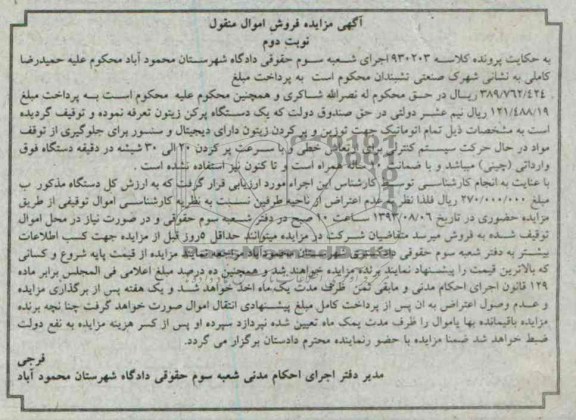 آگهی مزایده فروش اموال منقول
نوبت دوم
به حکایت پرونده کلاسه ۹۳۰۲۰۳ اجرای شعبه سوم حقوقی دادگاه شهرستان محمود آباد محکوم علیه حمیدرضا
کاملی به نشانی شهرک صنعتی تشبندان محکوم است به پرداخت مبلغ
۳۸۹/۷۶۲/۴۲۴ ریال در حق محکوم له نصرالله شاکری و همچنین محکوم علیه محکوم است به پرداخت مبلغ
۱۲۱/۴۸۸/۱۹ ریال نیم عشر دولتی در حق صندوق دولت که یک دستگاه پرکن زیتون تعرفه نموده و توقیف گردیده
است به مشخصات ذیل تمام اتوماتیک جهت توزین و پر کردن زیتون دارای دیجیتال و سنسور برای جلوگیری از توقف
مواد در حال حرکت سیستم کنترل خطی و با سرعت پر کردن ۲۰ الی ۳۰ شیشه در دقیقه دستگاه فوق
وارداتی (چینی) میباشد و با ضمانت همراه است و تا کنون نیز استفاده نشده است .
با عنایت به انجام کارشناسی توسط کارشناس این اجراء مورد ارزیابی قرار گرفت که به ارزش کل دستگاه مذکور ب
مبلغ ۲۷۰/۰۰۰/۰۰۰ ریال فلذا نظر به عدم اعتراض از ناحیه طرفین نسبت به نظریه کارشناسی اموال توقیفی از طریق
مزایده حضوری در تاریخ ۱۳۹۳/۰۸/۰۶ ساعت ۱۰ صبح در دفتر شعبه سوم حقوقی و در صورت نیاز در محل اموال
توقیف شده به فروش میرسد متقاضیان شرکت در مزایده میتوانند حداقل ۵روز قبل از مزایده جهت کسب اطلاعات
بیشتر به دفتر شعبه سوم حقوقی دادگستری شهرستان محمودآباد مراجعه مزایده از قیمت پایه شروع و کسانی
که بالاترین قیمت را پیشنهاد نمایند برنده مزایده خواهند شد و همچنین ده درصد مبلغ اعلامی فی المجلس برابر ماده
۱۲۹ قانون اجرای احکام مدنی و مابقی ثمن ظرف مدت یک ماه اخذ خواهد شد و یک هفته پس از برگذاری مزایده
و عدم وصول اعتراض به ان پس از پرداخت کامل مبلغ پیشنهادی انتقال اموال صورت خواهد گرفت چنا نچه برنده
مزایده باقیمانده بها یاموال را ظرف مدت یمک ماه تعیین شده نپردازد سپرده او پس از کسر هزینه مزایده به نفع دولت
ضبط خواهد شد ضمنا مزایده با حضور نماینده محترم دادستان برگزار می گردد.
فرجی
مدیر دفتر اجرای احکام مدنی شعبه سوم حقوقی دادگاه شهرستان محمود آباد